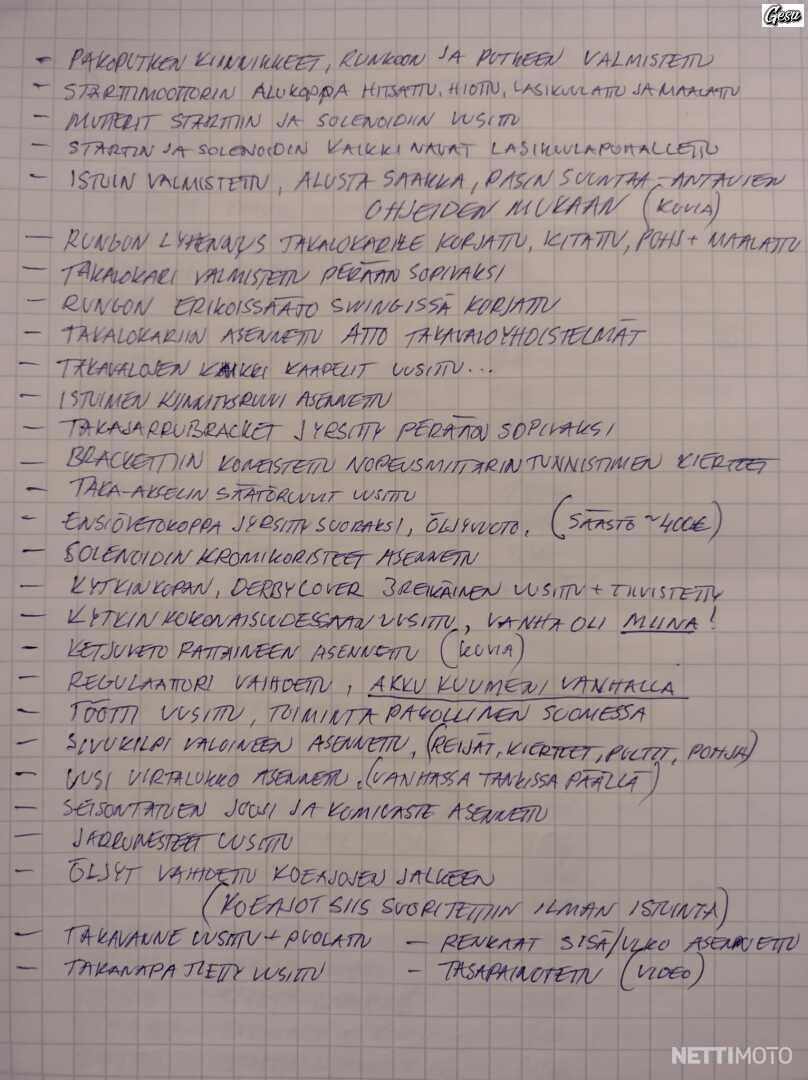 Gesu
- PAKOPUTKEN KIINNIKKEET, RUNKOON JA PUTKEEN VALMISTETTU
- STARTTIMOOTTORIN ALUKOPPA HITSATTU, HIOTTU, LASIKUULATTU JA MAALATTU
- MUTTERIT STARTTIIN JA SOLENOIDIIN UUSITTU
- STARTIN JA SOLENOIDIN KAIKKI NAVAT LASIKUULAPUHALLETTU
- ISTUIN VALMISTETTU, ALUSTA SAAKKA, PASIN SUUNTAA-ANTAVIEN
OHJEIDEN MUKAAN (KUVIA)
- RUNGON LYHENNYS TAKALOKARILLE KORJATTU, KITATTU, POHJ + MAALATTU
- TAKALOKARI VALMISTETTU PERÄÄN SOPIVAKSI
- RUNGON ERIKOISSÄÄTÖ SWINGISSÄ KORJATTU
- TAKALOKARIIN ASENNETTU ATTO TAKAVALOYHDISTELMÄT
- TAKAVALOJEN KAIKKI KAAPELIT UUSITTU...
- ISTUIMEN KIINNITYSRUUVI ASENNETTU
- TAKAJARRUBRACKET JYRSITTY PERÄÄN SOPIVAKSI
- BRACKETTIIN KONEISTETTU NOPEUSMITTARIN TUNNISTIMEN KIERTEET
- TAKA-AKSELIN SÄÄTÖRUUVIT UUSITTU
- ENSIÖVETOKOPPA JYRSITTY SUORAKSI, ÖLJYVUOTO, (SÄÄSTÖ ~400€)
- SOLENOIDIN KROMIKORISTEET ASENNETTU
- KYTKINKOPAN, DERBYCOVER 3REIKÄINEN UUSITTU + TIIVISTETTY
- KYTKIN KOKONAISUUDESSAAN UUSITTU, VANHA OLI MUNA!
- KETJUVETO RATTAINEEN ASENNETTU (KUVIA)
- REGULAATTORI VAIHDETTU, AKKU KUUMENI VANHALLA
- TÖÖTTI UUSITTU, TOIMINTA PAKOLLINEN SUOMESSA
- SIVUKILPI VALOINEEN ASENNETTU, (REIJÄT, KIERTEET, PULTIT, POHJA)
- UUSI VIRTALUKKO ASENNETTU, (VANHASSA TANKISSA PÄÄLLÄ)
- SEISONTATUEN JOUSI JA KUMIVASTE ASENNETTU
- JARRUNESTEET UUSITTU
- ÖLJYT VAIHDETTU KOEAJOJEN JALKEEN
(KOEAJOT SIIS SUORITETTIIN ILMAN ISTUINTA)
- TAKAVANNE UUSITTU + PUOLATTU - RENKAAT SISÄ/ULKO ASENNETTU
- TAKANAPA TIETTY UUSITTU - TASAPAINOTETTU (VIDEO)
NETTIMOTO